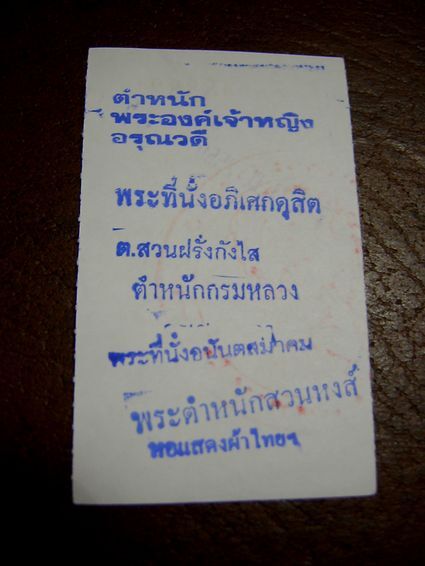 ตำหนัก
พระองค์เจ้าหญิง
อรุณวดี
พระที่นั่งอภิเศกดุสิต
ต.สวนฝรั่งกังไส
ตำหนักกรมหลวง
พระที่นั่งอนันตสมาคม
พระตำหนักสวนหงส์
หอแสดงผ้าไทยฯ